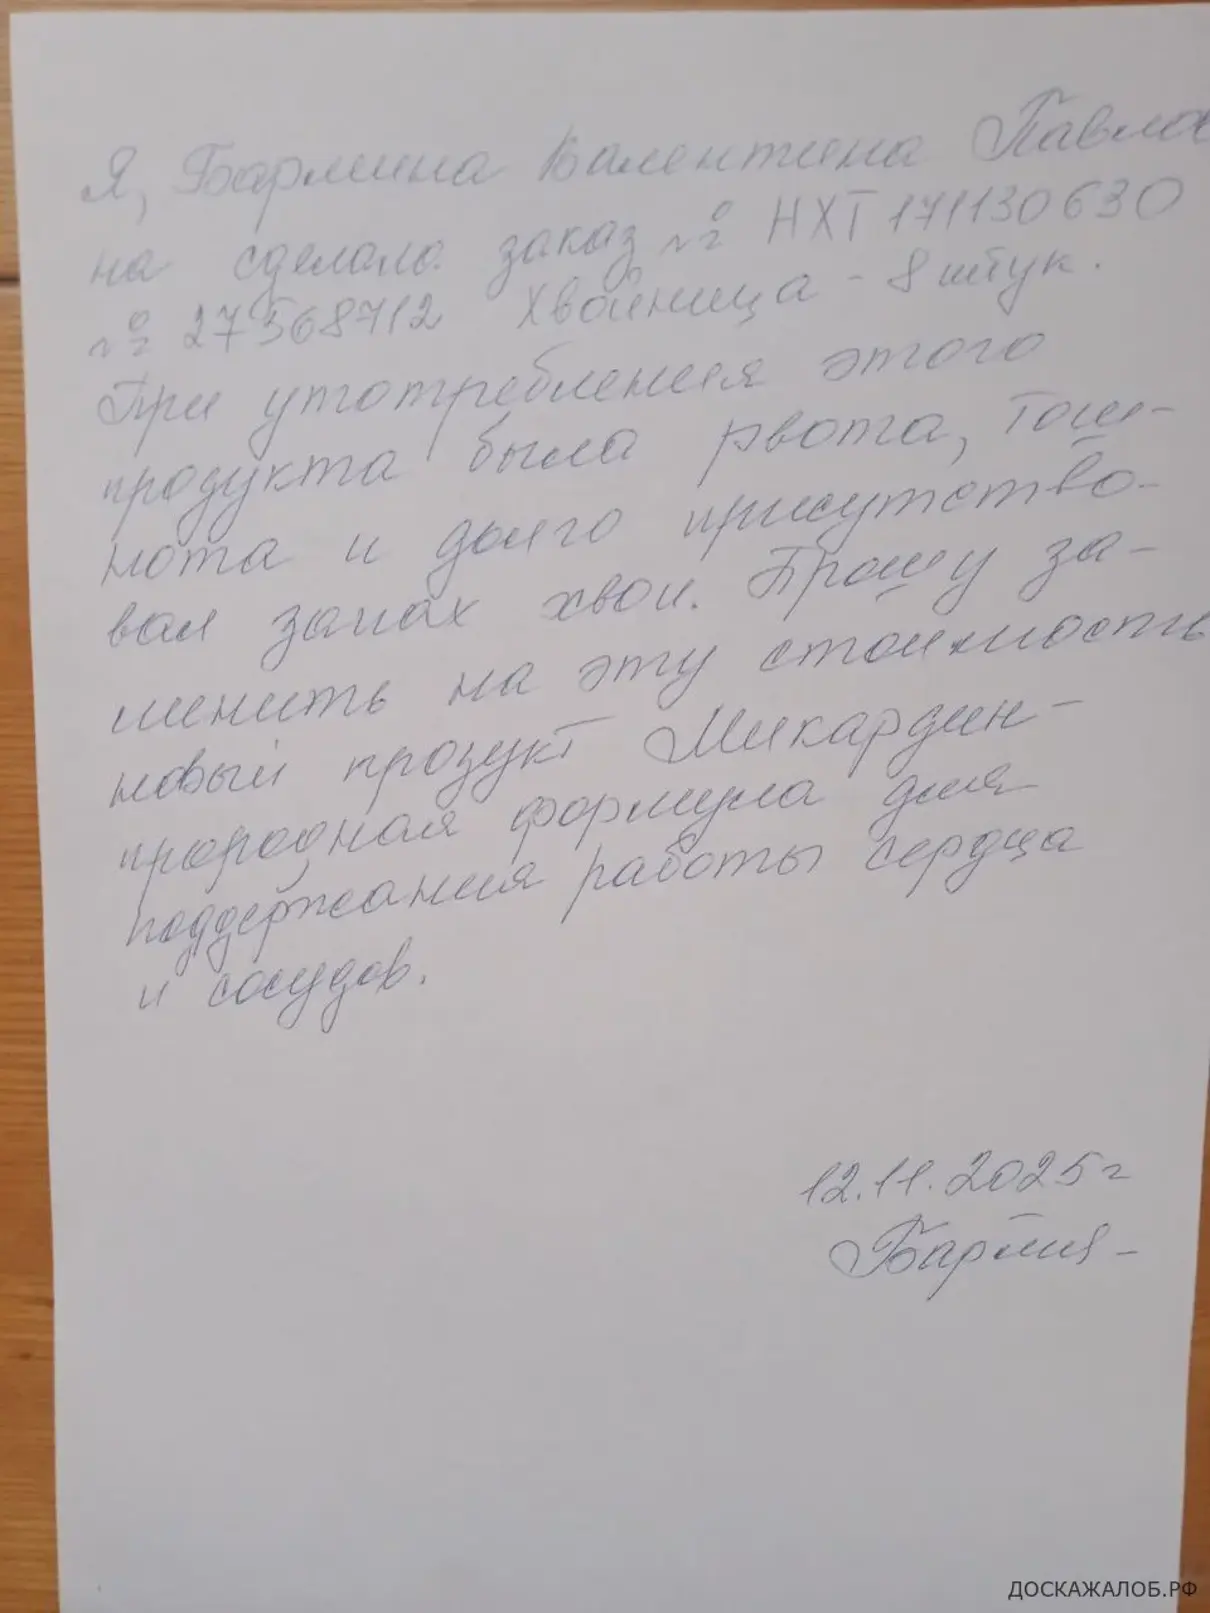 Я, Бармина Валентина Павлов
на сделала заказ № НХТ 171130630
№ 27568712 Хвойница - 8 штук.
При употребления этого
продукта была рвота, тош-
нота и долго присутство-
вал запах хвои. Прошу за-
менить на эту стоимость
новый продукт Микардин-
природная формула для
поддержания работы сердца
и сосудов.
12.11.2025г
ДОСКАЖАЛОБ.РФ